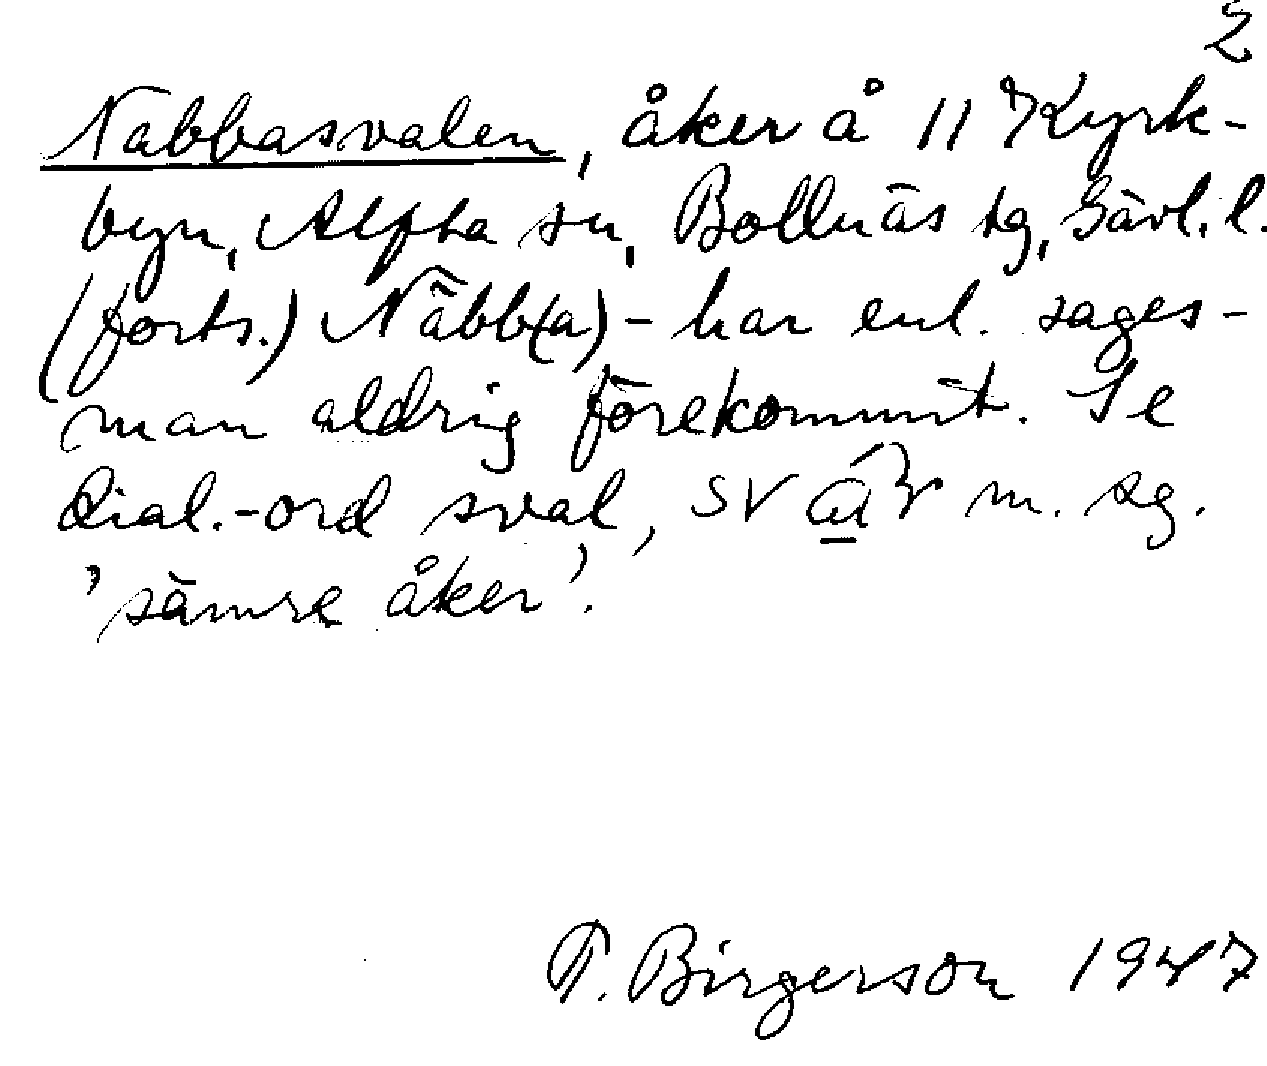 2
Nabbasvalen, åker å 11 Kyrk-
byn, Alfta sn, Bollnäs tg, Gävl. l.
(forts.) Näbb(a)- har enl. sages-
man aldrig förekommit. Se
dial.-ord sval, m. sg.
'sämre åker'.
T. Birgerson 1947